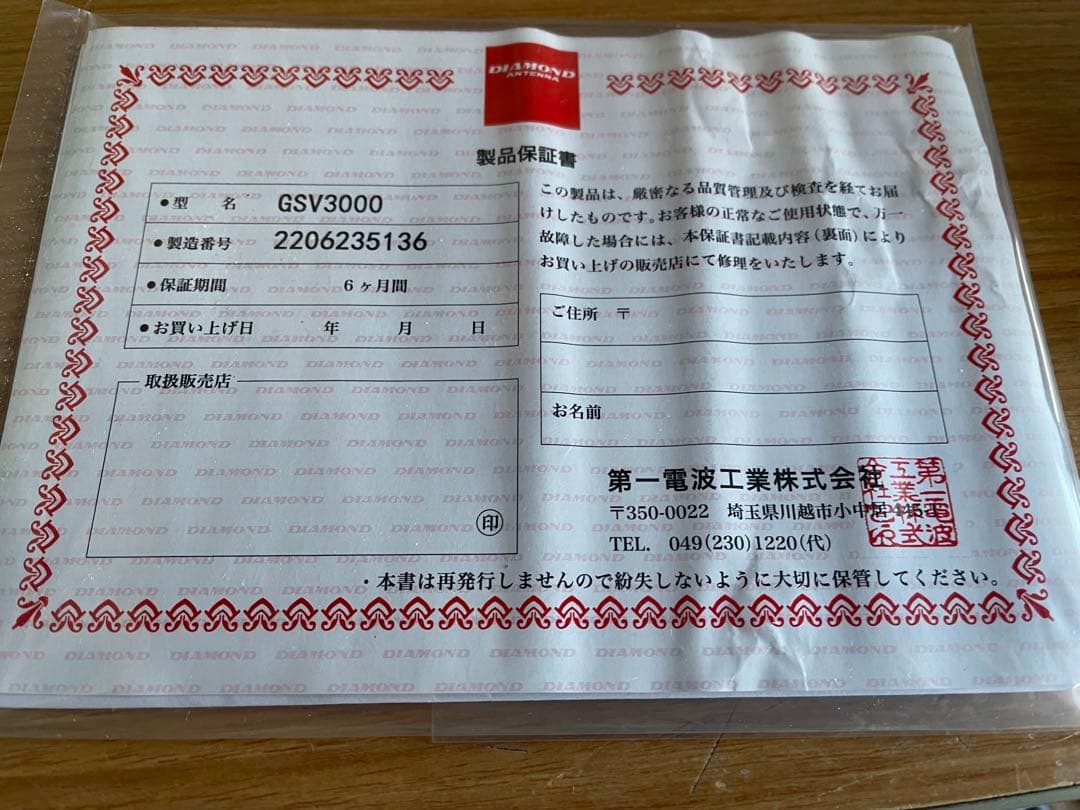 DIAMOND
ANTENNA
製品保証書
●型 名 GSV3000
●製造番号 2206235136
●保証期間 6ヶ月間
●お買い上げ日 年 月 日
取扱販売店
印
この製品は、厳密なる品質管理及び検査を経てお届
けしたものです。お客様の正常なご使用状態で、万一
故障した場合には、本保証書記載内容(裏面)により
お買い上げの販売店にて修理をいたします。
ご住所 〒
お名前
第一電波工業株式会社
〒350-0022 埼玉県川越市小中居
TEL. 049(230)1220(代)
・本書は再発行しませんので紛失しないように大切に保管してください。